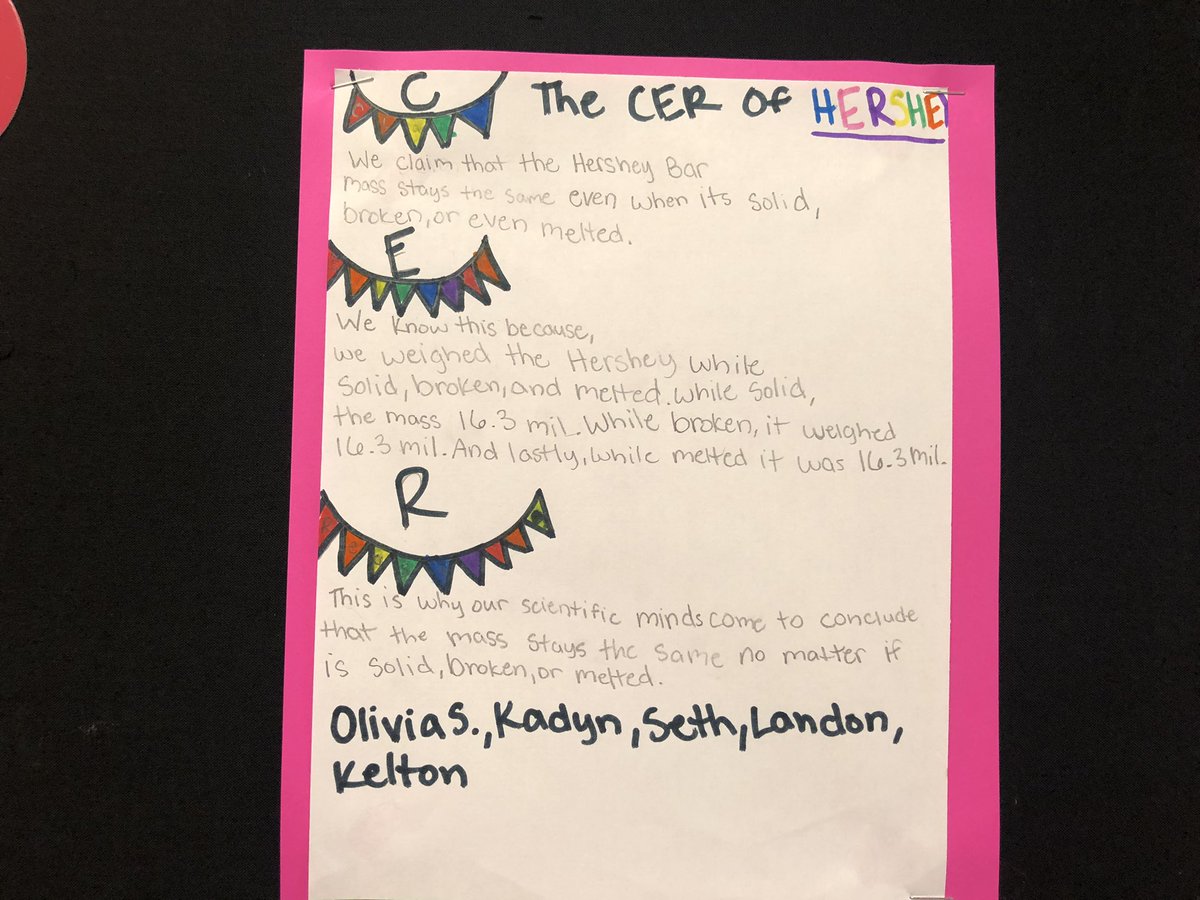 C
The CER OF HERSHEY
We claim that the Hershey Bar
mass stays the same even when its solid,
broken, or even melted.
E
We know this because,
we weighed the Hershey while
solid, broken, and melted. while solid,
the mass 16.3 mil. While broken, it weighed
16.3 mil. And lastly, while melted it was 16.3 mil.
R
This is why our scientific minds come to conclude
that the mass stays the same no matter if
is solid, broken, or melted.
Olivia S., Kadyn, Seth, Landon,
Kelton